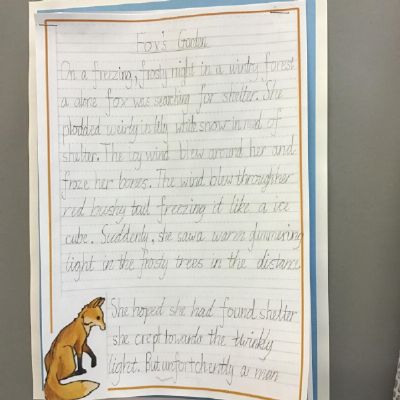 Fox's Garden
On a freezing, frosty night in a wintry forest
a alone fox was searching for shelter. She
plodded weirdly in lily white snow in need of
shelter. The icy wind blew around her and
froze her bones. The wind blew through her
red bushy tail freezing it like a ice
cube. Suddenly, she saw a warm glimmering
light in the frosty trees in the distance
She hoped she had found shelter
she crept towards the twinkly
light. But unfortchently a man